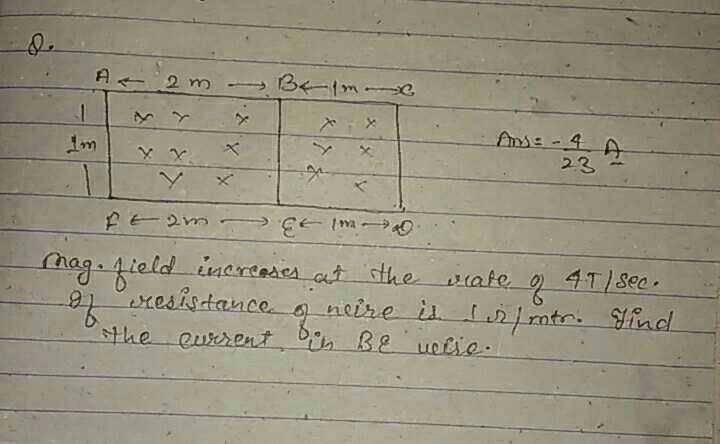 Q.
A ← 2 m → B ← 1m → C
1m
Ans = - 4/23 A
F ← 2m → E ← 1m → D
Mag. field increases at the rate of 4T/sec.
If resistance of wire is 1 Ω/mtr. Find
the current in BE wire.